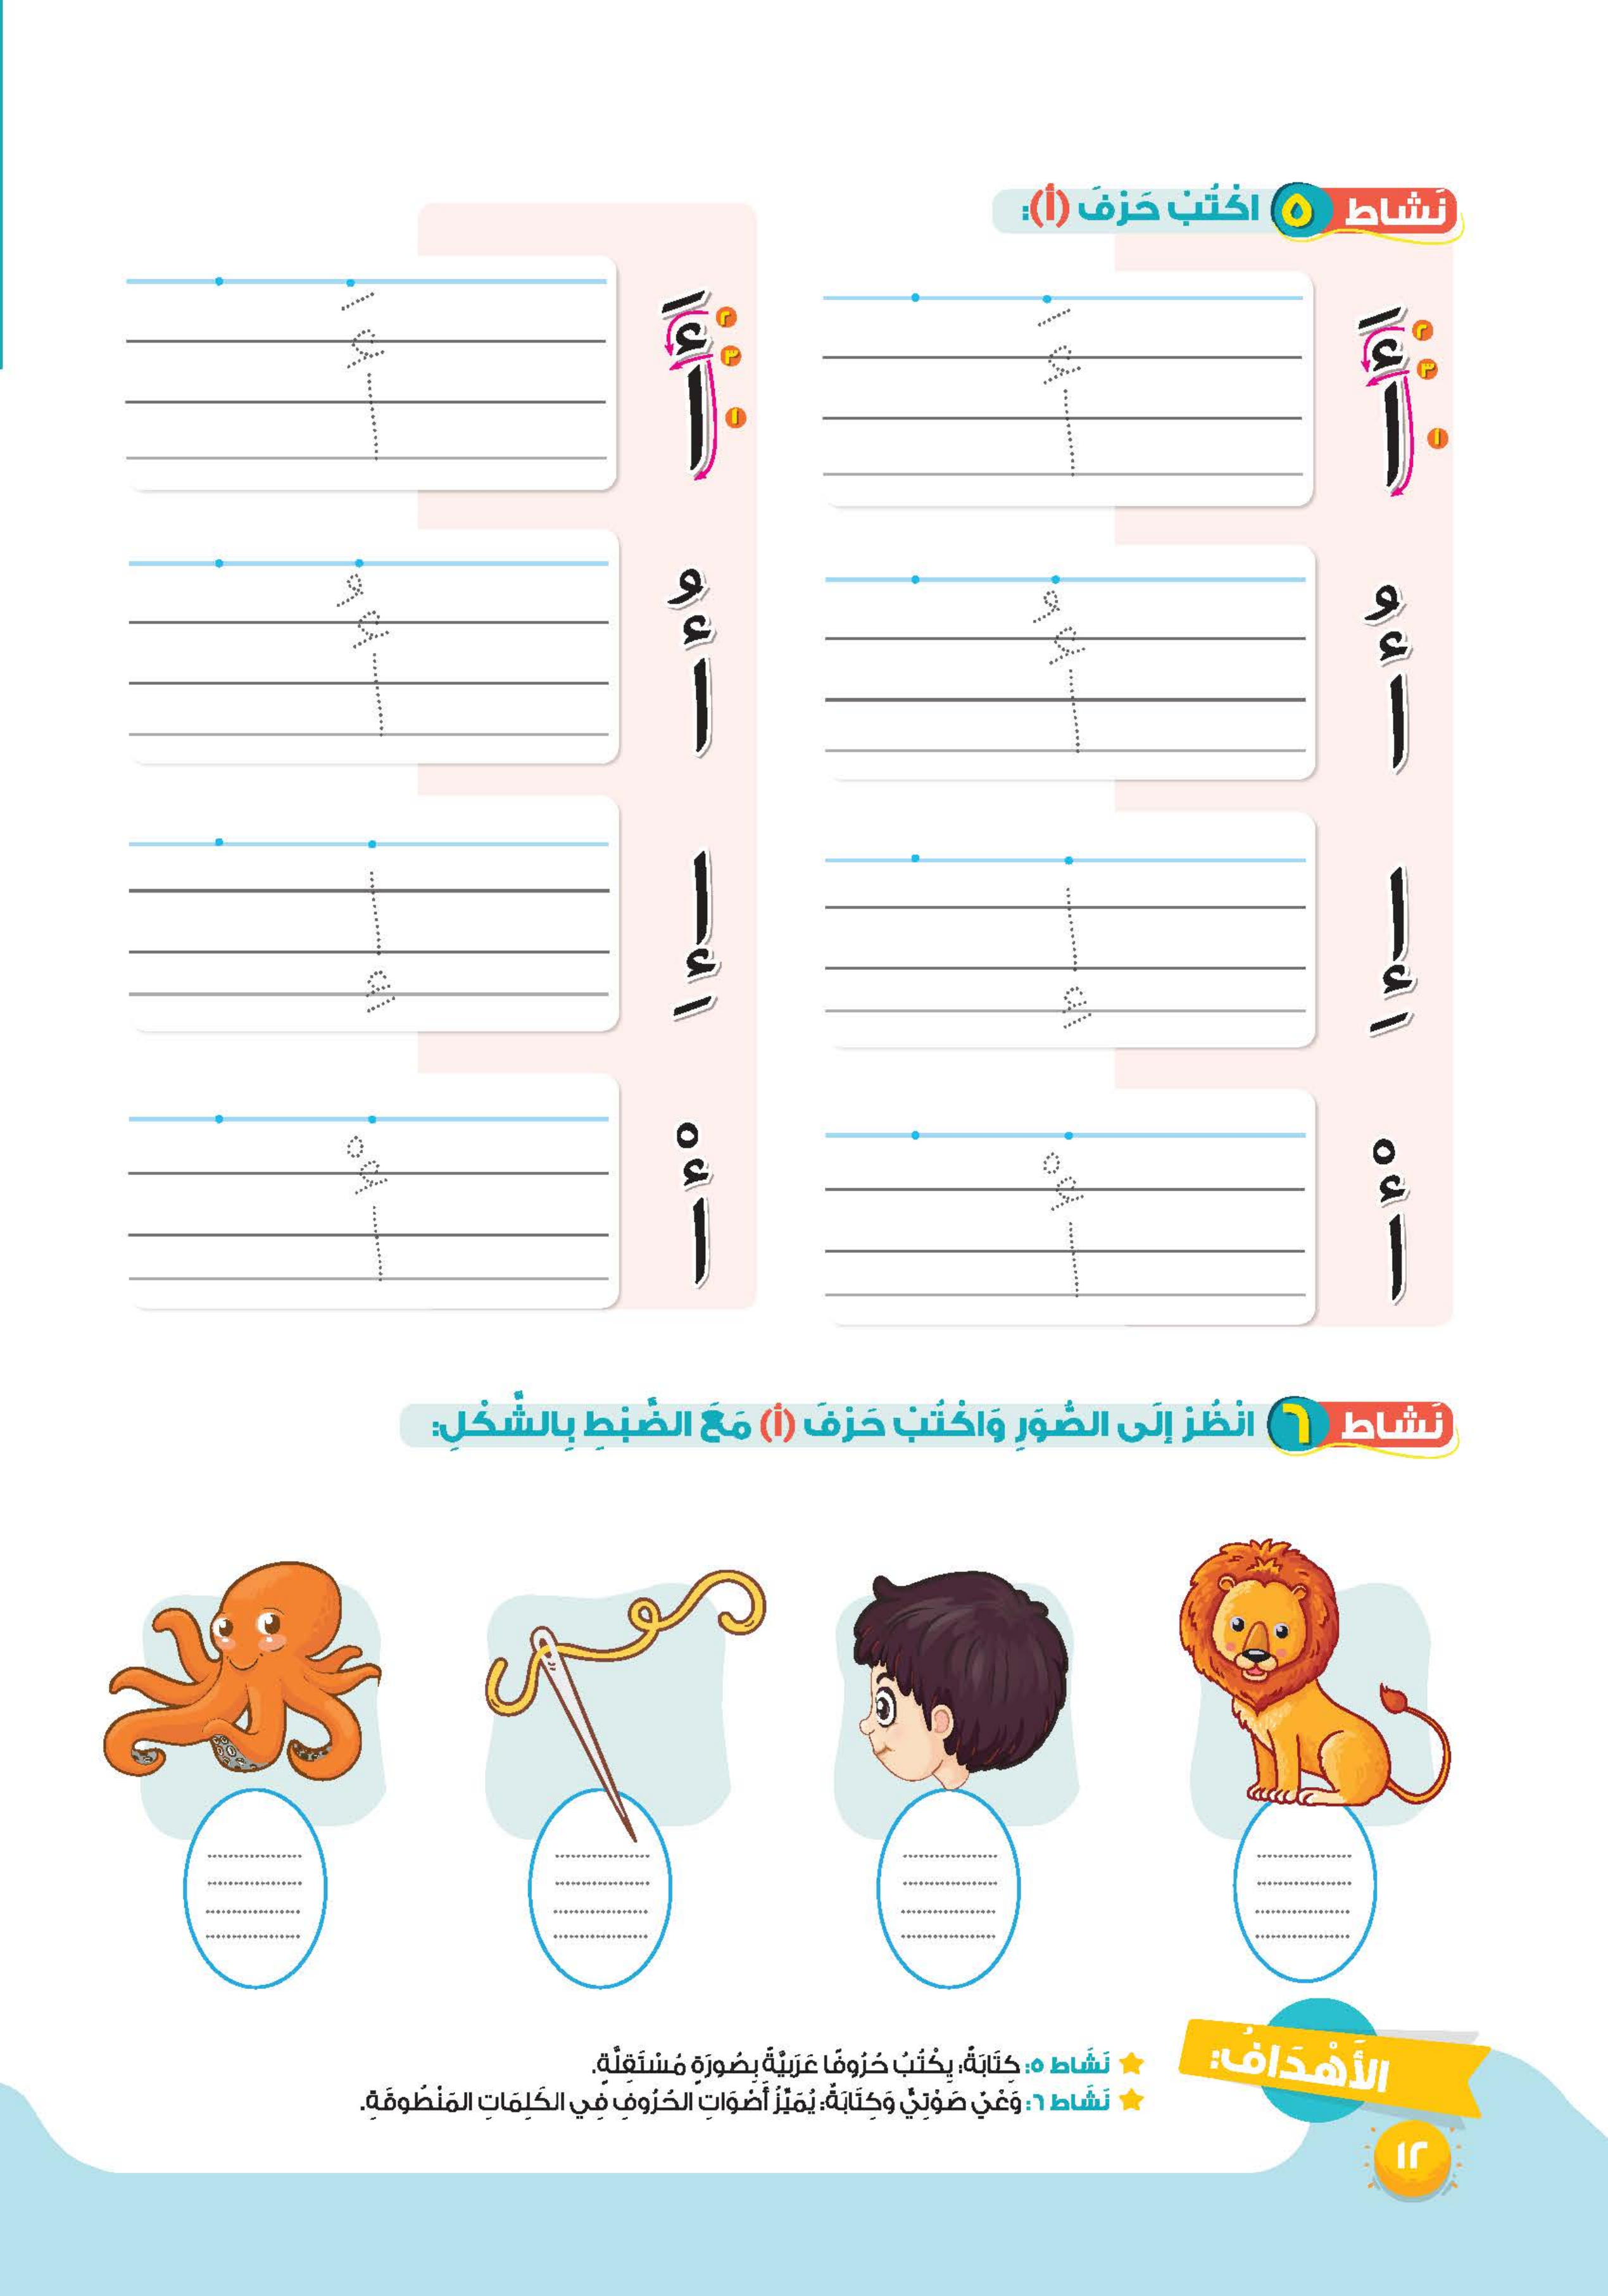 نَشاط ٥ اكْتُبْ حَرْفَ (أ):
أَ
٢
٣
١
أَ
٢
٣
١
أُ
أُ
إِ
إِ
أْ
أْ
نَشاط ٦ انْظُرْ إِلَى الصُّوَرِ وَاكْتُبْ حَرْفَ (أ) مَعَ الضَّبْطِ بِالشَّكْلِ:
الأَهْدَافُ:
نَشَاط ٥: كِتَابَةٌ: يِكْتُبُ حُرُوفًا عَرَبِيَّةً بِصُورَةٍ مُسْتَقِلَّةٍ.
نَشَاط ٦: وَعْيٌ صَوْتِيٌّ وَكِتَابَةٌ: يُمَيِّزُ أَصْوَاتِ الحُرُوفِ فِي الكَلِمَاتِ المَنْطُوقَةِ.
١٢